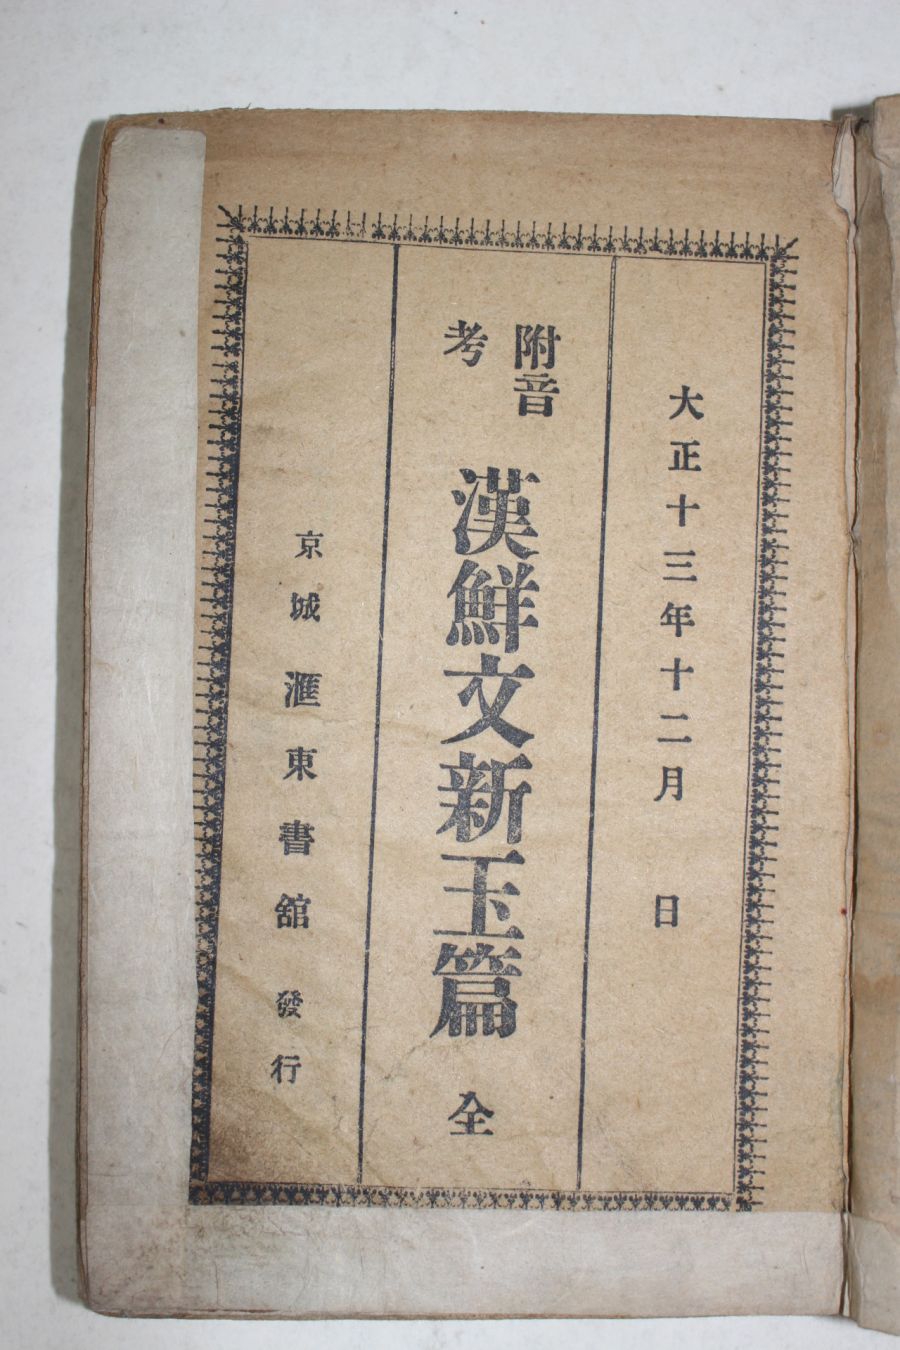 大正十三年十二月 日
附音
考
漢鮮文新玉篇 全
京城 滙東書舘 發行